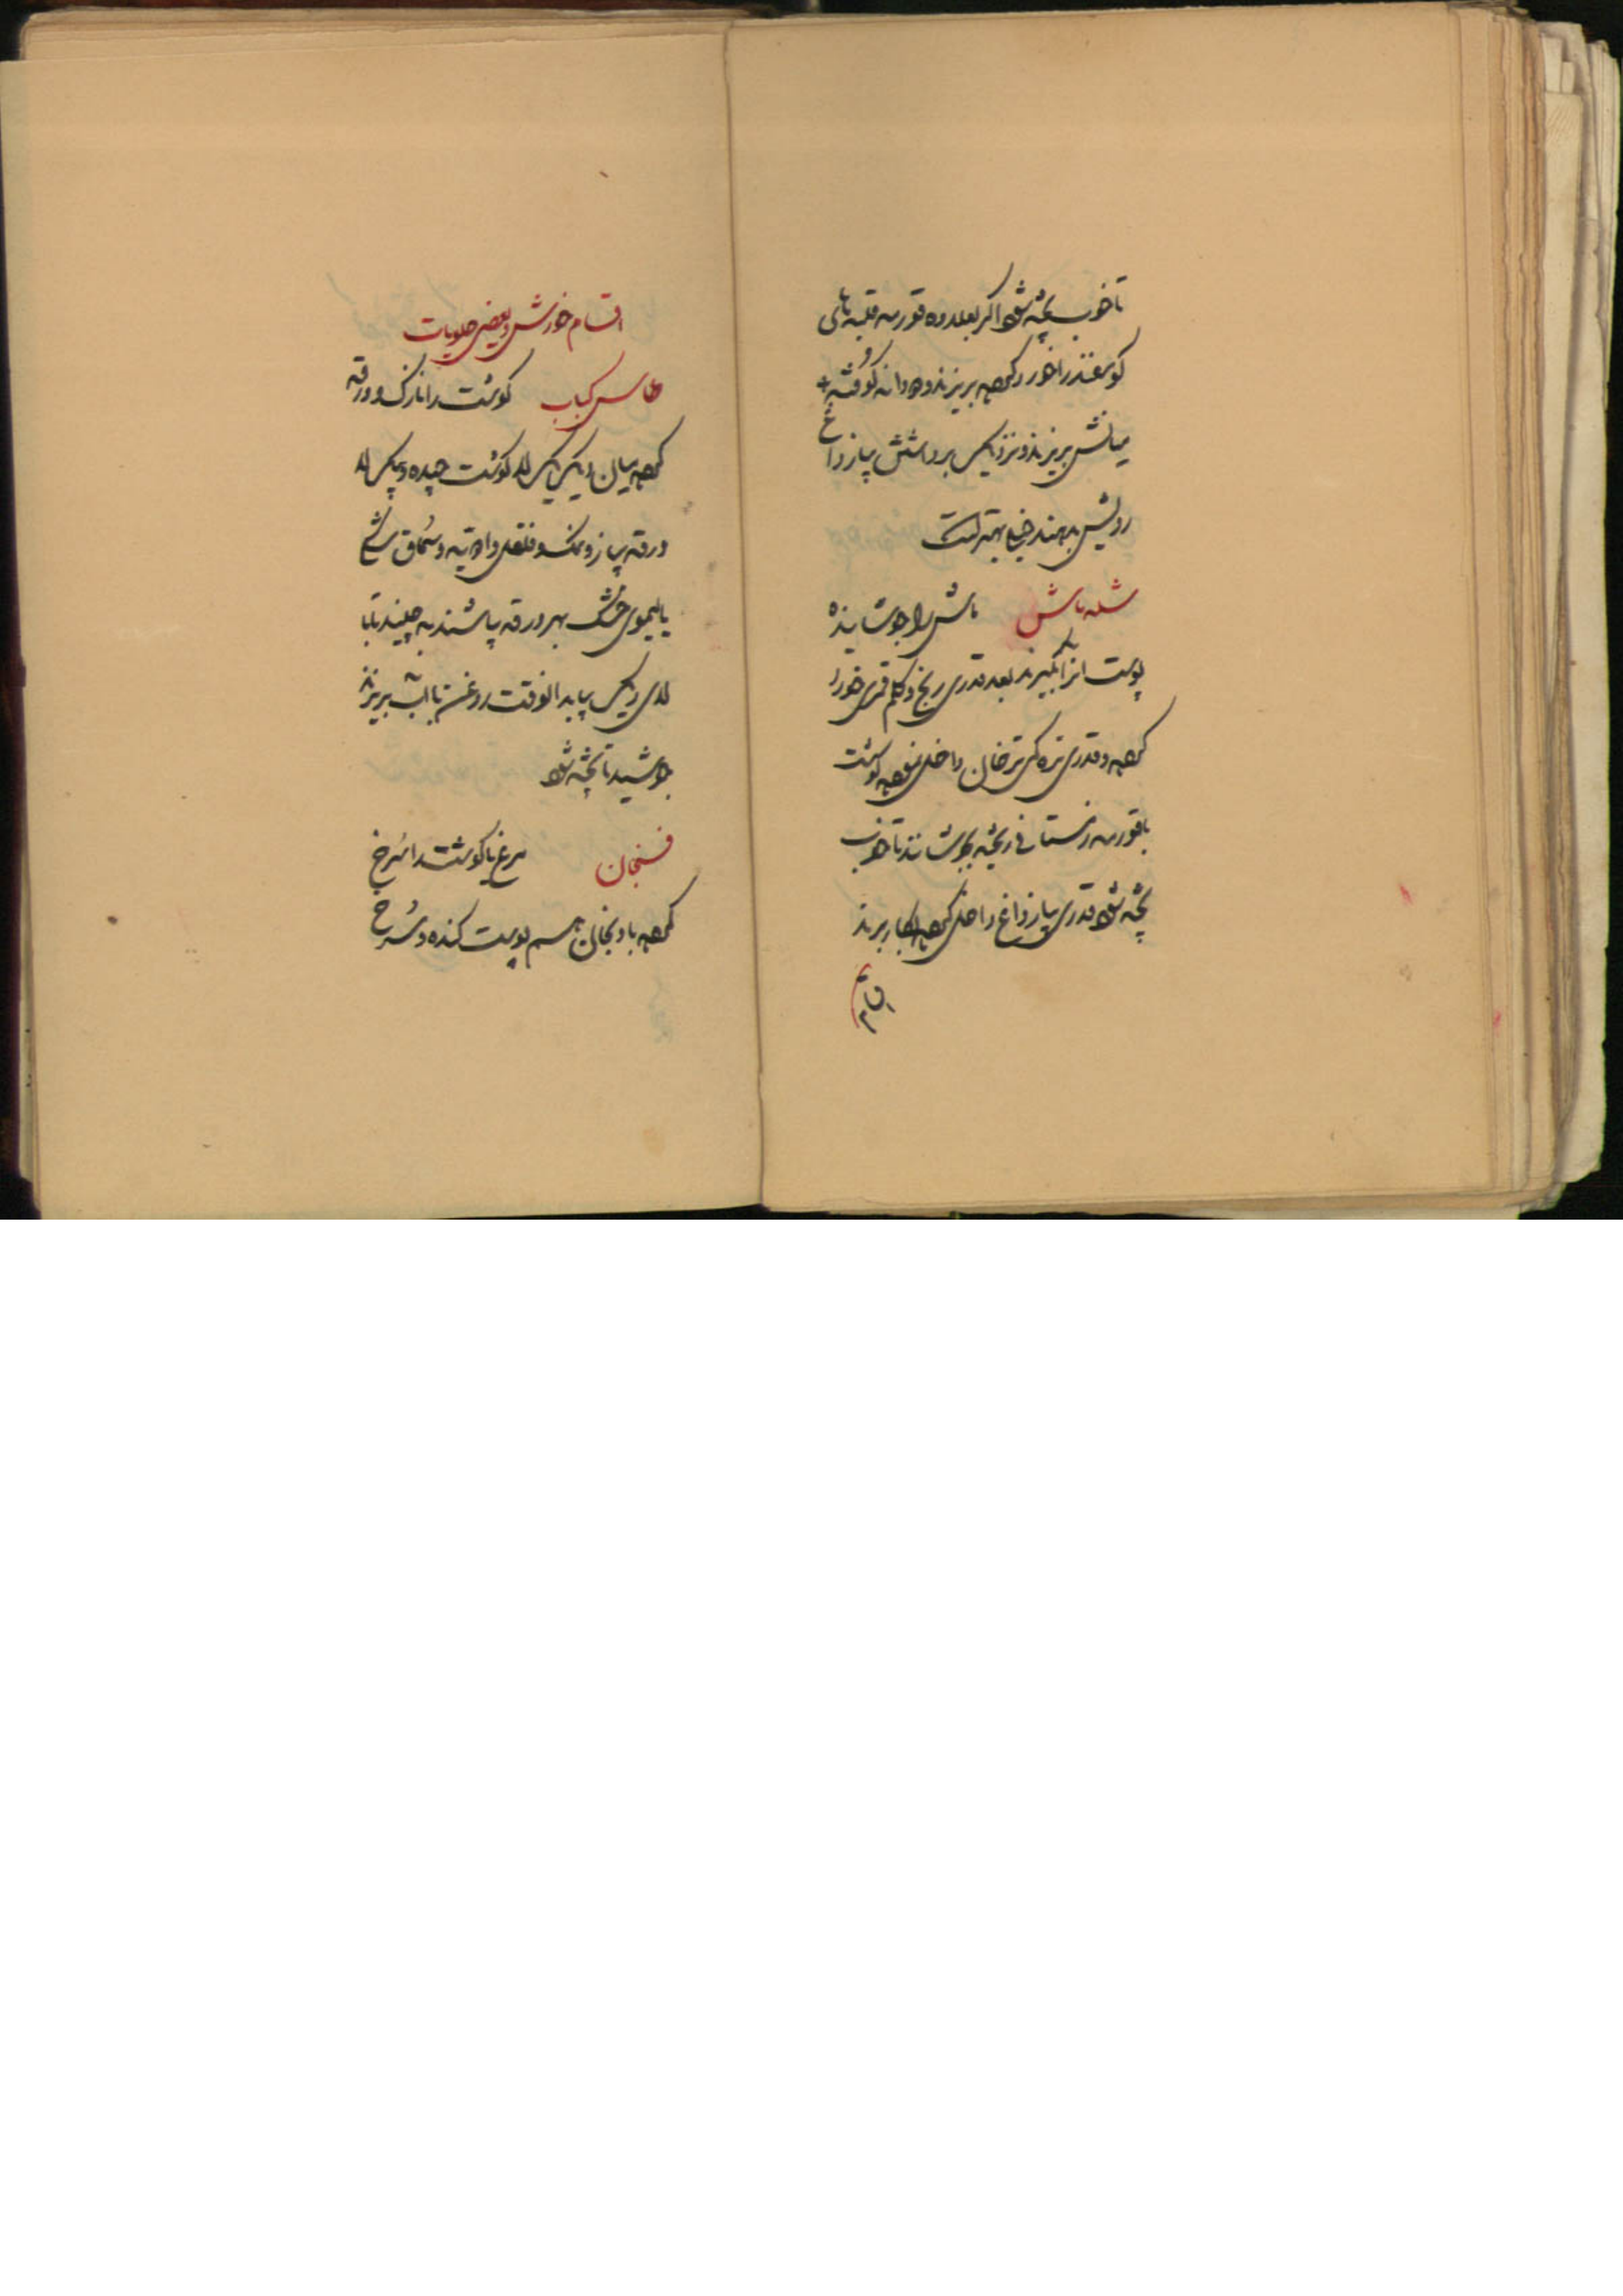 تا خوب پخته شود اگر بعلاوه قورمه قلبه‌های
گوسفند را خورد کرده بریزند و دو دانه کوفته
میانش بریزند و نزدیک برداشتن پیاز داغ
رویش بدهند خیلی بهتر است
شله ماش ماش را جوشانیده
پوست انرا بگیرند بعد قدری برنج و کلم قمری خورد
کرده و قدری تره کی ترخان داخل نموده گوشت
با قورمه زمستانی ریخته بجوشانند تا خوب
پخته شود قدری پیاز داغ داخل کرده بکار برند
اقسام خورش و بعضی حلویات
طاس کباب گوشت را نازک و ورقه
کرده میان دیگ یک لا گوشت چیده و یک لا
ورقه پیاز و نمک و فلفل و ادویه و سُماق
یا لیموی خشک بهر ورقه پاشند به چینند تا با
لای دیگ بیاید انوقت روغن با آب بریزند
جوشید تا پخته شود
فسنجان مرغ یا گوشت را سُرخ
کرده بادنجان هم پوست کنده و سُرخ